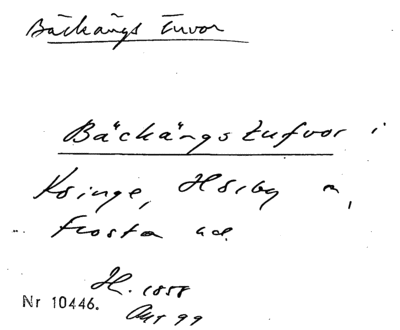 Bäckängs Tuvor
Bäckängstufvor i
Kringe, Hörby m,
Frosta hd.
H. 1858
Nr 10446.
Aug 99